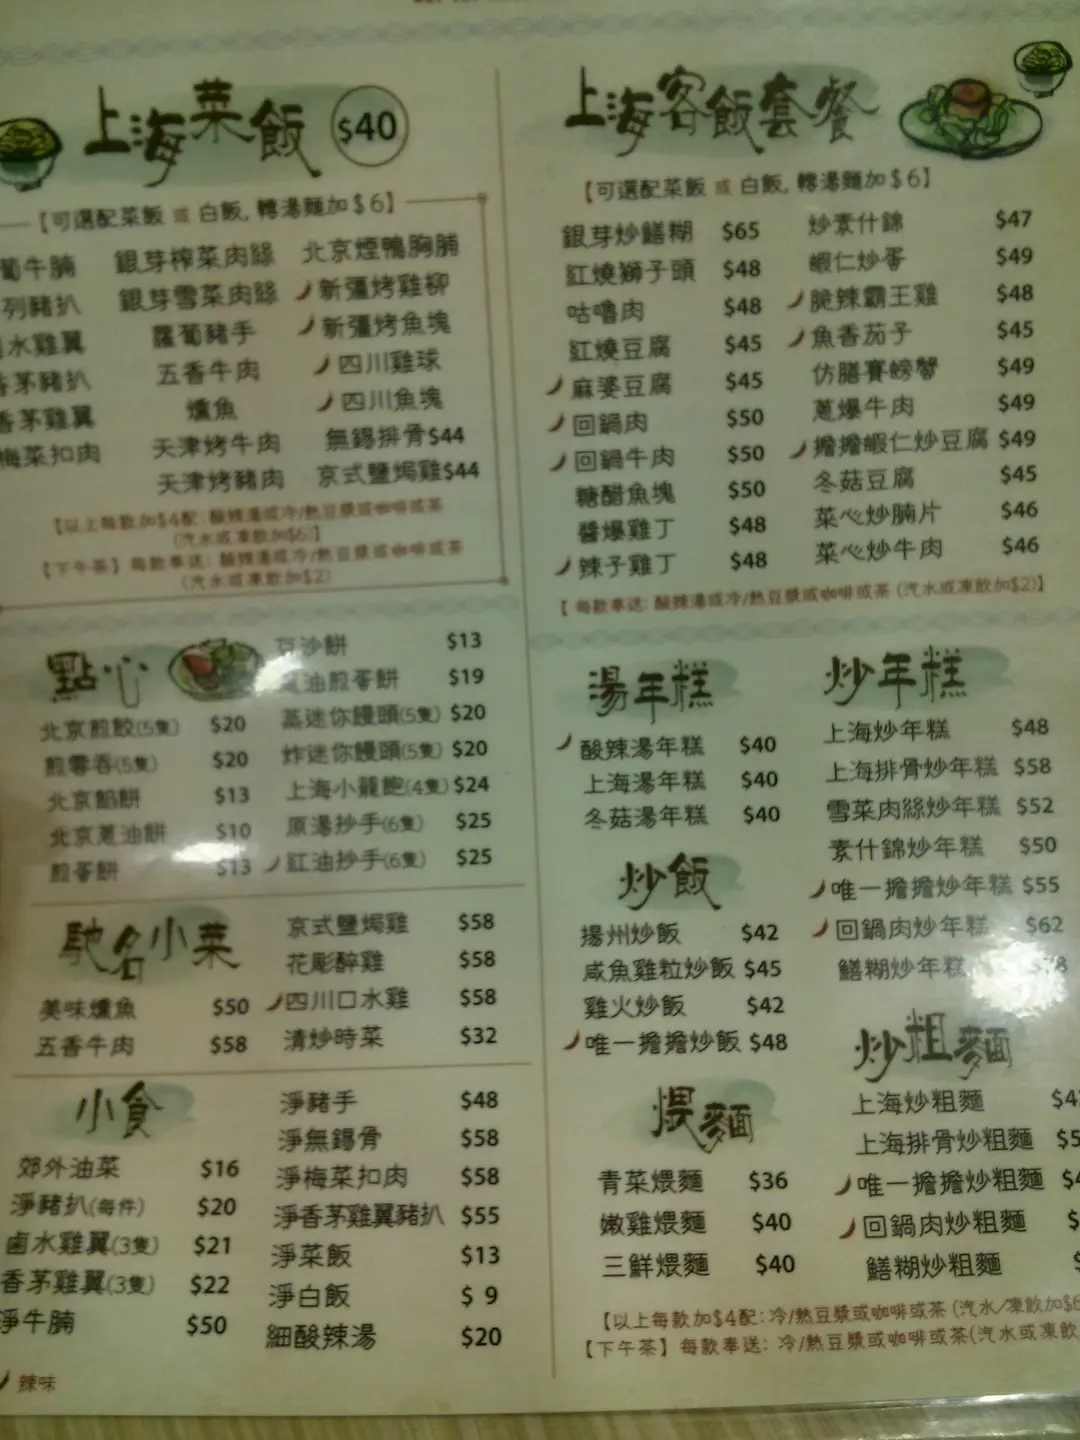 上海菜飯 $40
【可選配菜飯 或 白飯, 轉湯麵加$6】
蔔牛腩 銀芽榨菜肉絲 北京煙鴨胸脯
列豬扒 銀芽雪菜肉絲 新彊烤雞柳
水雞翼 蘿蔔豬手 新彊烤魚塊
香茅豬扒 五香牛肉 四川雞球
香茅雞翼 燻魚 四川魚塊
梅菜扣肉 天津烤牛肉 無錫排骨$44
天津烤豬肉 京式鹽焗雞$44
【以上每款加$4配: 酸辣湯或冷/熱豆漿或咖啡或茶
(汽水或凍飲加$6)】
【下午茶】每款奉送: 酸辣湯或冷/熱豆漿或咖啡或茶
(汽水或凍飲加$2)
上海客飯套餐
【可選配菜飯 或 白飯, 轉湯麵加$6】
銀芽炒鱔糊 $65 炒素什錦 $47
紅燒獅子頭 $48 蝦仁炒蛋 $49
咕嚕肉 $48 脆辣霸王雞 $48
紅燒豆腐 $45 魚香茄子 $45
麻婆豆腐 $45 仿膳賽螃蟹 $49
回鍋肉 $50 蔥爆牛肉 $49
回鍋牛肉 $50 擔擔蝦仁炒豆腐 $49
糖醋魚塊 $50 冬菇豆腐 $45
醬爆雞丁 $48 菜心炒腩片 $46
辣子雞丁 $48 菜心炒牛肉 $46
【每款奉送: 酸辣湯或冷/熱豆漿或咖啡或茶 (汽水或凍飲加$2)】
點心
豆沙餅 $13
油煎蛋餅 $19
北京煎餃(5隻) $20 蒸迷你饅頭(5隻) $20
煎雲吞(5隻) $20 炸迷你饅頭(5隻) $20
北京餡餅 $13 上海小籠飽(4隻) $24
北京蔥油餅 $10 原湯抄手(6隻) $25
煎蛋餅 $13 紅油抄手(6隻) $25
馳名小菜
京式鹽焗雞 $58
花彫醉雞 $58
美味燻魚 $50 四川口水雞 $58
五香牛肉 $58 清炒時菜 $32
小食
淨豬手 $48
淨無錫骨 $58
郊外油菜 $16 淨梅菜扣肉 $58
淨豬扒(每件) $20 淨香茅雞翼豬扒 $55
鹵水雞翼(3隻) $21 淨菜飯 $13
香茅雞翼(3隻) $22 淨白飯 $ 9
淨牛腩 $50 細酸辣湯 $20
辣味
湯年糕
酸辣湯年糕 $40
上海湯年糕 $40
冬菇湯年糕 $40
炒飯
揚州炒飯 $42
咸魚雞粒炒飯 $45
雞火炒飯 $42
唯一擔擔炒飯 $48
煨麵
青菜煨麵 $36
嫩雞煨麵 $40
三鮮煨麵 $40
炒年糕
上海炒年糕 $48
上海排骨炒年糕 $58
雪菜肉絲炒年糕 $52
素什錦炒年糕 $50
唯一擔擔炒年糕 $55
回鍋肉炒年糕 $62
鱔糊炒年糕
炒粗麵
上海炒粗麵
上海排骨炒粗麵
唯一擔擔炒粗麵
回鍋肉炒粗麵
鱔糊炒粗麵
【以上每款加$4配: 冷/熱豆漿或咖啡或茶 (汽水/凍飲加$6
【下午茶】每款奉送: 冷/熱豆漿或咖啡或茶(汽水或凍飲